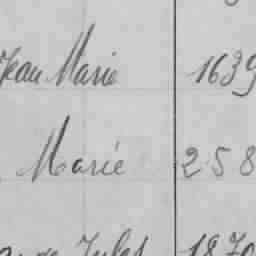 Jean Marie 1639
Marie 258
Jules 1870